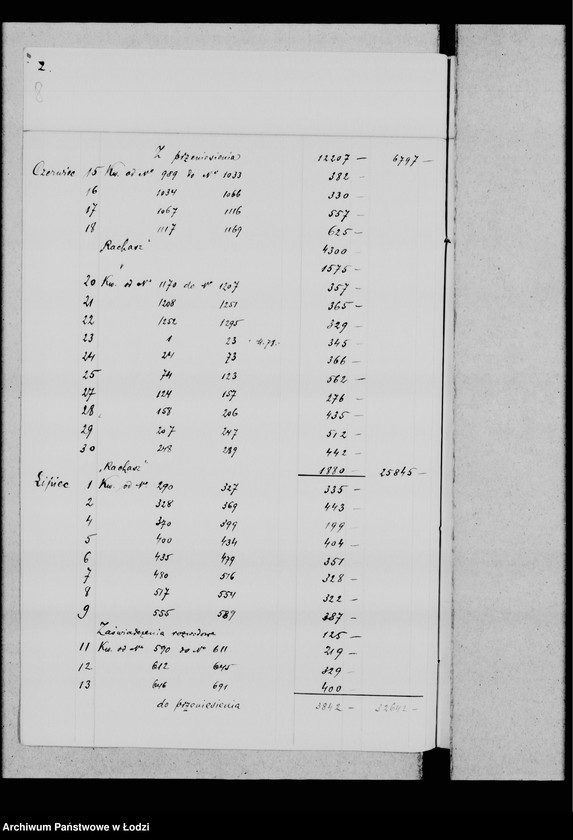 2.
8
Z przeniesienia 12207 — 6797 —
Czerwiec 15 Kw. od Nº 989 do Nº 1033 382 —
16 1034 1066 330 —
17 1067 1116 557 —
18 1117 1169 625 —
"Rachasz" 4300 —
" 1575 —
20 Kw. od Nº 1170 do Nº 1207 357 —
21 1208 1251 365 —
22 1252 1295 329 —
23 1 23 345 —
24 24 73 366 —
25 74 123 562 —
27 124 157 276 —
28 158 206 435 —
29 207 247 512 —
30 248 289 442 —
"Rachasz" 1880 — 25845 —
Lipiec 1 Kw. od Nº 290 327 335 —
2 328 369 443 —
4 370 399 199 —
5 400 434 404 —
6 435 479 351 —
7 480 516 328 —
8 517 554 322 —
9 555 589 387 —
Zaświadczenia rozwodowe 125 —
11 Kw. od Nº 590 do Nº 611 219 —
12 612 645 329 —
13 646 691 400 —
do przeniesienia 3842 — 32642 —
Archiwum Państwowe w Łodzi